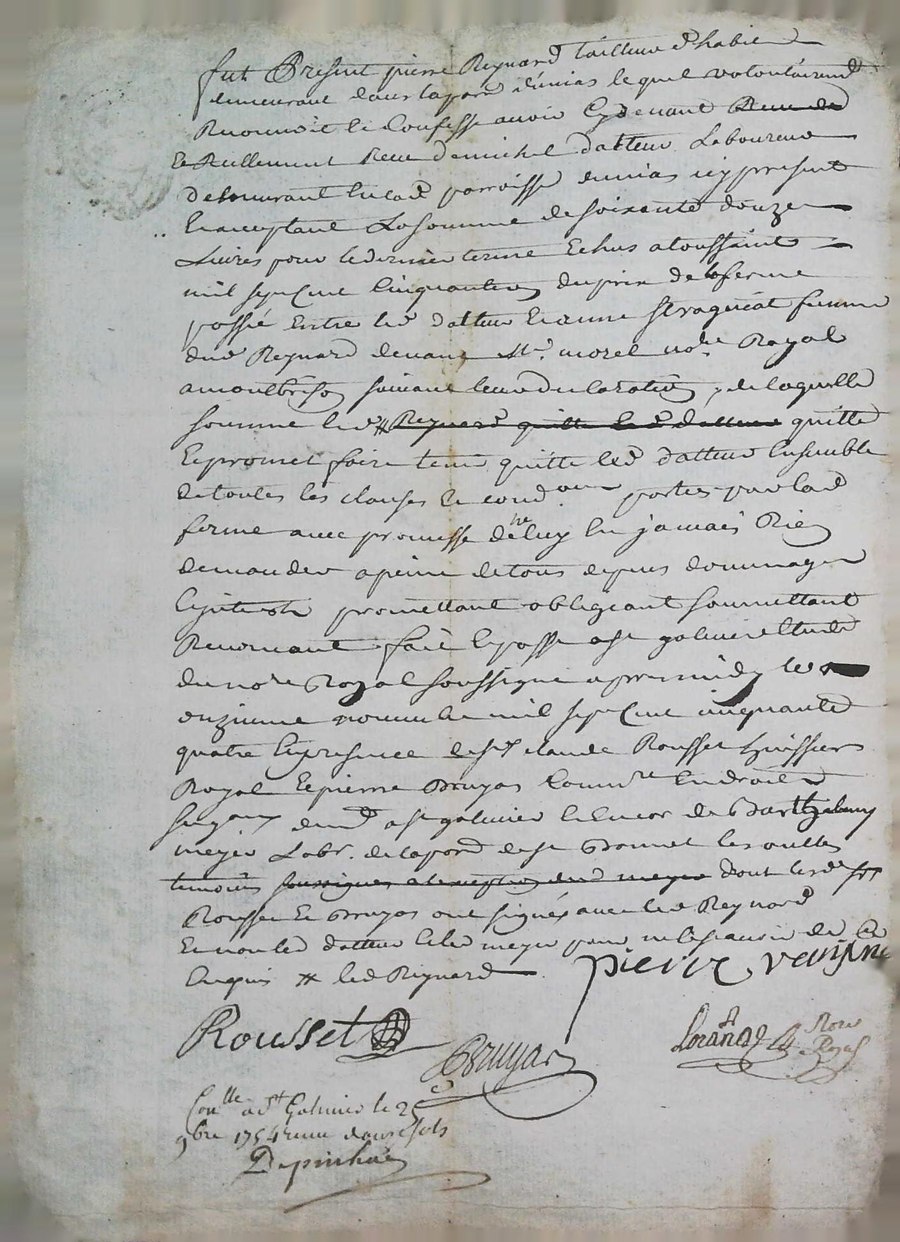 fut Present pierre Reynard tailleur d'habie
demeurant dans la parr d'unias lequel volontairemt
Reconnoit et Confesse avoir Cydevant
Reellement Receu de michel d'atteur Laboureur
demeurant en lad parroisse dunias icy present
Et acceptant La somme de soixante douze
Livres pour le dernier terme Echus a toussaint
mil sept Cent Cinquante du prix de la ferme
passé Entre led d'atteur Et anne fillon
dud Reynard devant Me morel nore Royal
a montbrison suivant leur declaration, de laquelle
somme led # Reynard quitte led d'atteur quitte
Et promet faire tenir quitte led d'atteur Ensemble
de toutes les clauses et condons portés par lad
ferme avec promesse de ne luy En jamais Rien
demander a peine de tous depens dommages
Et interets promettant obligeant soumettant
Renonceant fait Et passé a st galmier Etude
du nore Royal soussigné apres midy le
onzieme novembre mil sept Cent cinquante
quatre En presence de sr claude Rousset huissier
Royal Et pierre Bruyas Commre En droits
seigaux demt a st galmier Et Encor de Barthelemy
meyer Labr. de la parr de st Bonnet les oulles
temoins soussignes a l'exception dud meyer dont lesd srs
Rousset Et Bruyas ont signés avec led Reynard
Et non led d'atteur Et led meyer pour ne le scavoir de ce
Enquis # led Reynard
pierre reynard
Rousset
Bruyas
Nore Royal
Conlle a st Galmier le 25
9bre 1754 receu douze sols
Depinhac